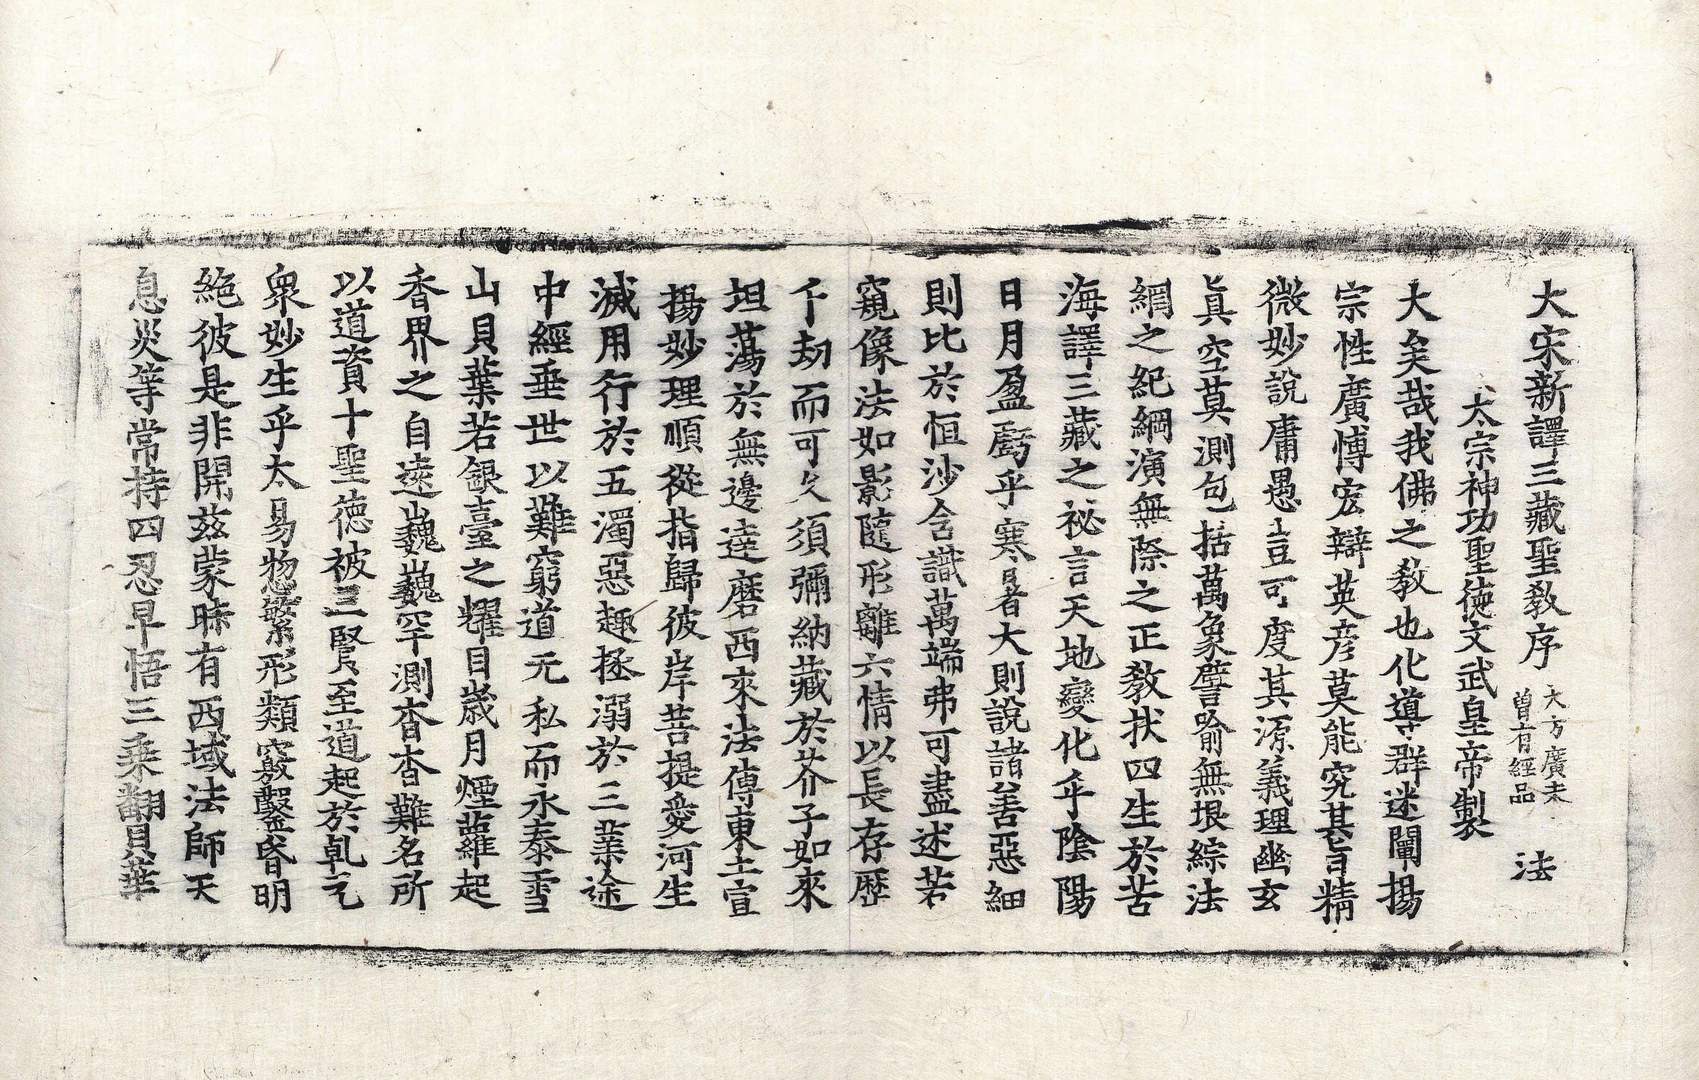 大宋新譯三藏聖教序 大方廣未曾有經品 法
太宗神功聖德文武皇帝製
大矣哉我佛之教也化導群迷闡揚
宗性廣博宏辯英彥莫能究其旨精
微妙說庸愚豈可度其源義理幽玄
眞空莫測包括萬象譬喻無垠綜法
網之紀綱演無際之正教拔四生於苦
海譯三藏之祕言天地變化乎陰陽
日月盈虧乎寒暑大則說諸善惡細
則比於恒沙含識萬端弗可盡述若
窺像法如影隨形離六情以長存歷
千劫而可久須彌納藏於芥子如來
坦蕩於無邊達磨西來法傳東土宣
揚妙理順從指歸彼岸菩提愛河生
滅用行於五濁惡趣拯溺於三業途
中經垂世以難窮道无私而永泰雪
山貝葉若銀臺之耀目歲月煙蘿起
香界之自遠巍巍罕測杳杳難名所
以道資十聖德被三賢至道起於乹元
衆妙生乎太易惣繁形類竅鑿昏明
絕彼是非開茲蒙昧有西域法師天
息災等常持四忍早悟三乘翻貝葉